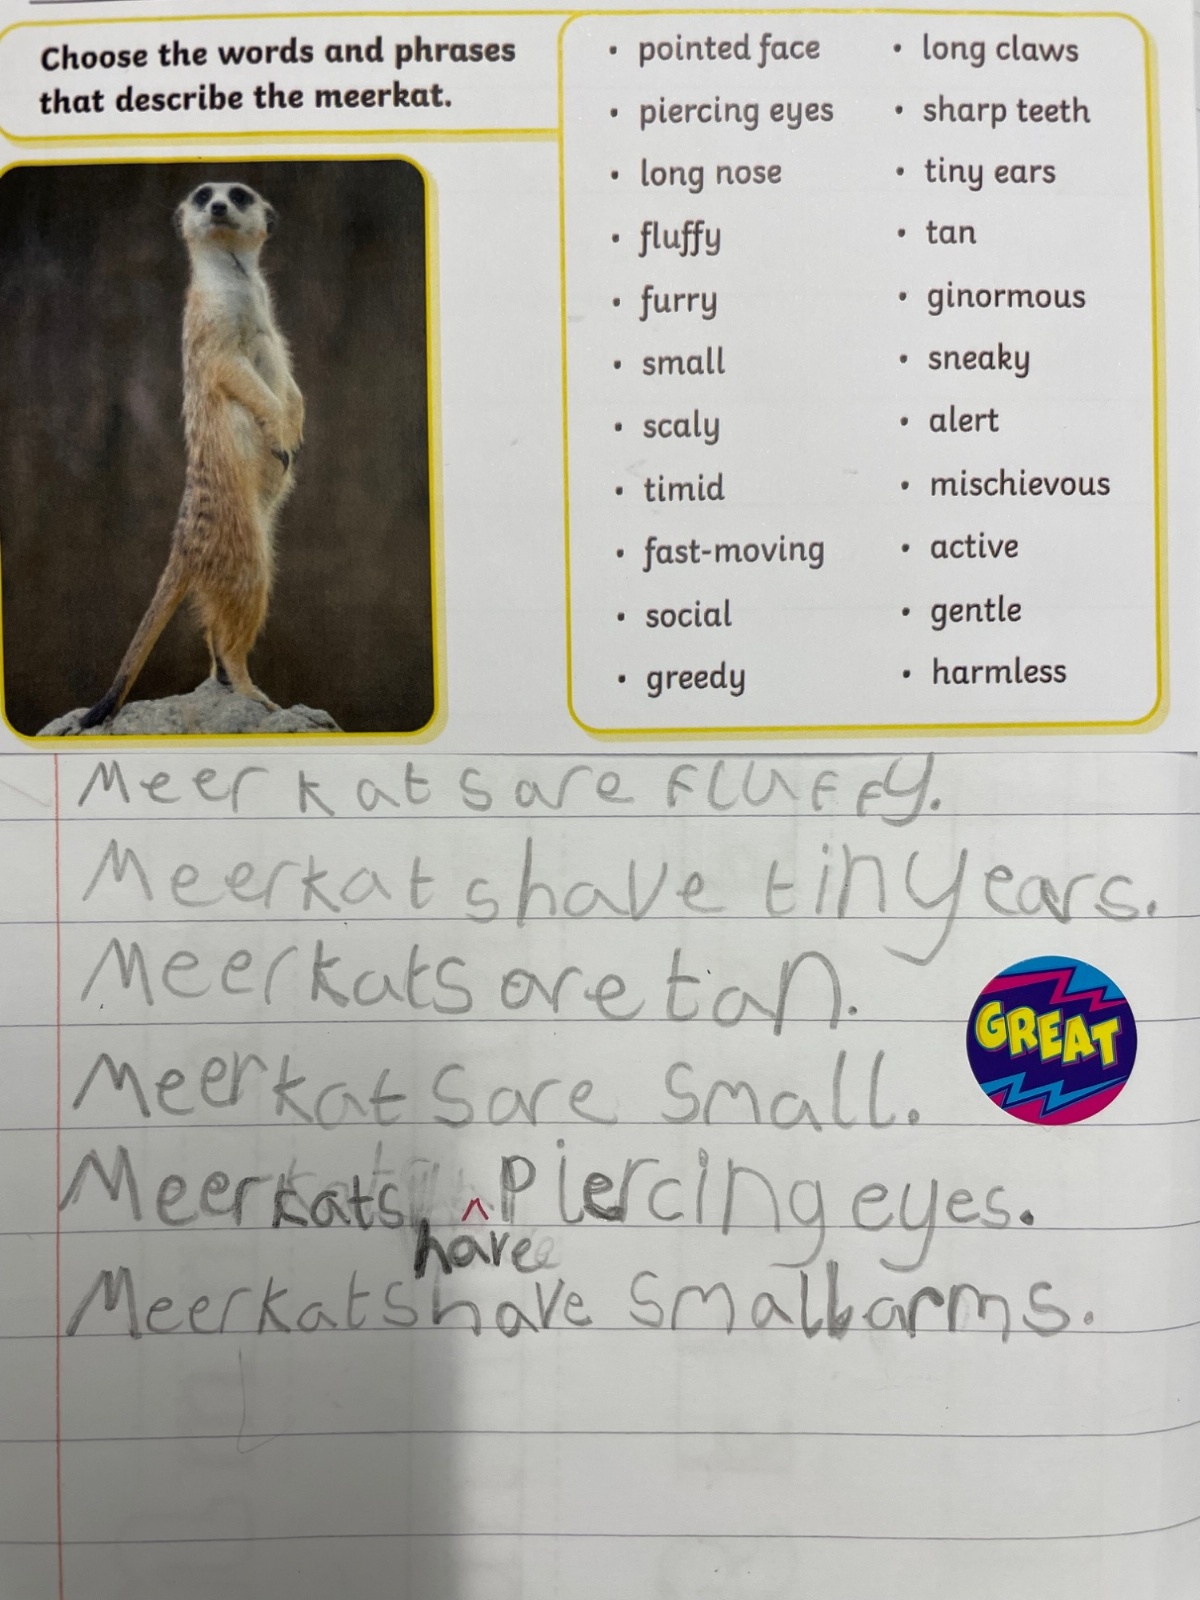 Choose the words and phrases
that describe the meerkat.
• pointed face
• piercing eyes
• long nose
• fluffy
• furry
• small
• scaly
• timid
• fast-moving
• social
• greedy
• long claws
• sharp teeth
• tiny ears
• tan
• ginormous
• sneaky
• alert
• mischievous
• active
• gentle
• harmless
Meerkats are fluffy.
Meerkats have tiny ears.
Meerkats are tan.
GREAT
Meerkats are small.
Meerkats ^ piercing eyes.
have
Meerkats have small arms.